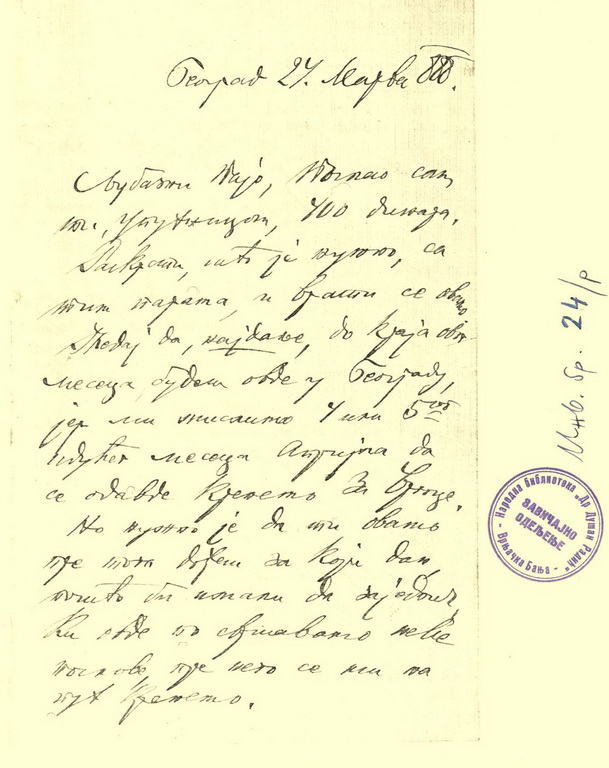 Београд 24. Марта
Љубазни Пајо, Послао сам
ти, упутницом, 400 динара.
Раскрати, што је нужно, са
тим парама, и врати се овамо
Гледај да, најдаље, до краја овог
месеца будеш овде у Београду,
јер ми мислимо 4 или 5ог
идућег месеца Априла да
се одавде кренемо за Врњце.
Но нужно је да ти овамо
пре тога дођеш за који дан,
пошто би имали да заједнич
ки овде по свршавамо неке
послове, пре него се ми на
пут кренемо.
Инв. бр. 24/р
Народна библиотека „Др Душан Радић"
ЗАВИЧАЈНО
ОДЕЉЕЊЕ
- Врњачка Бања -